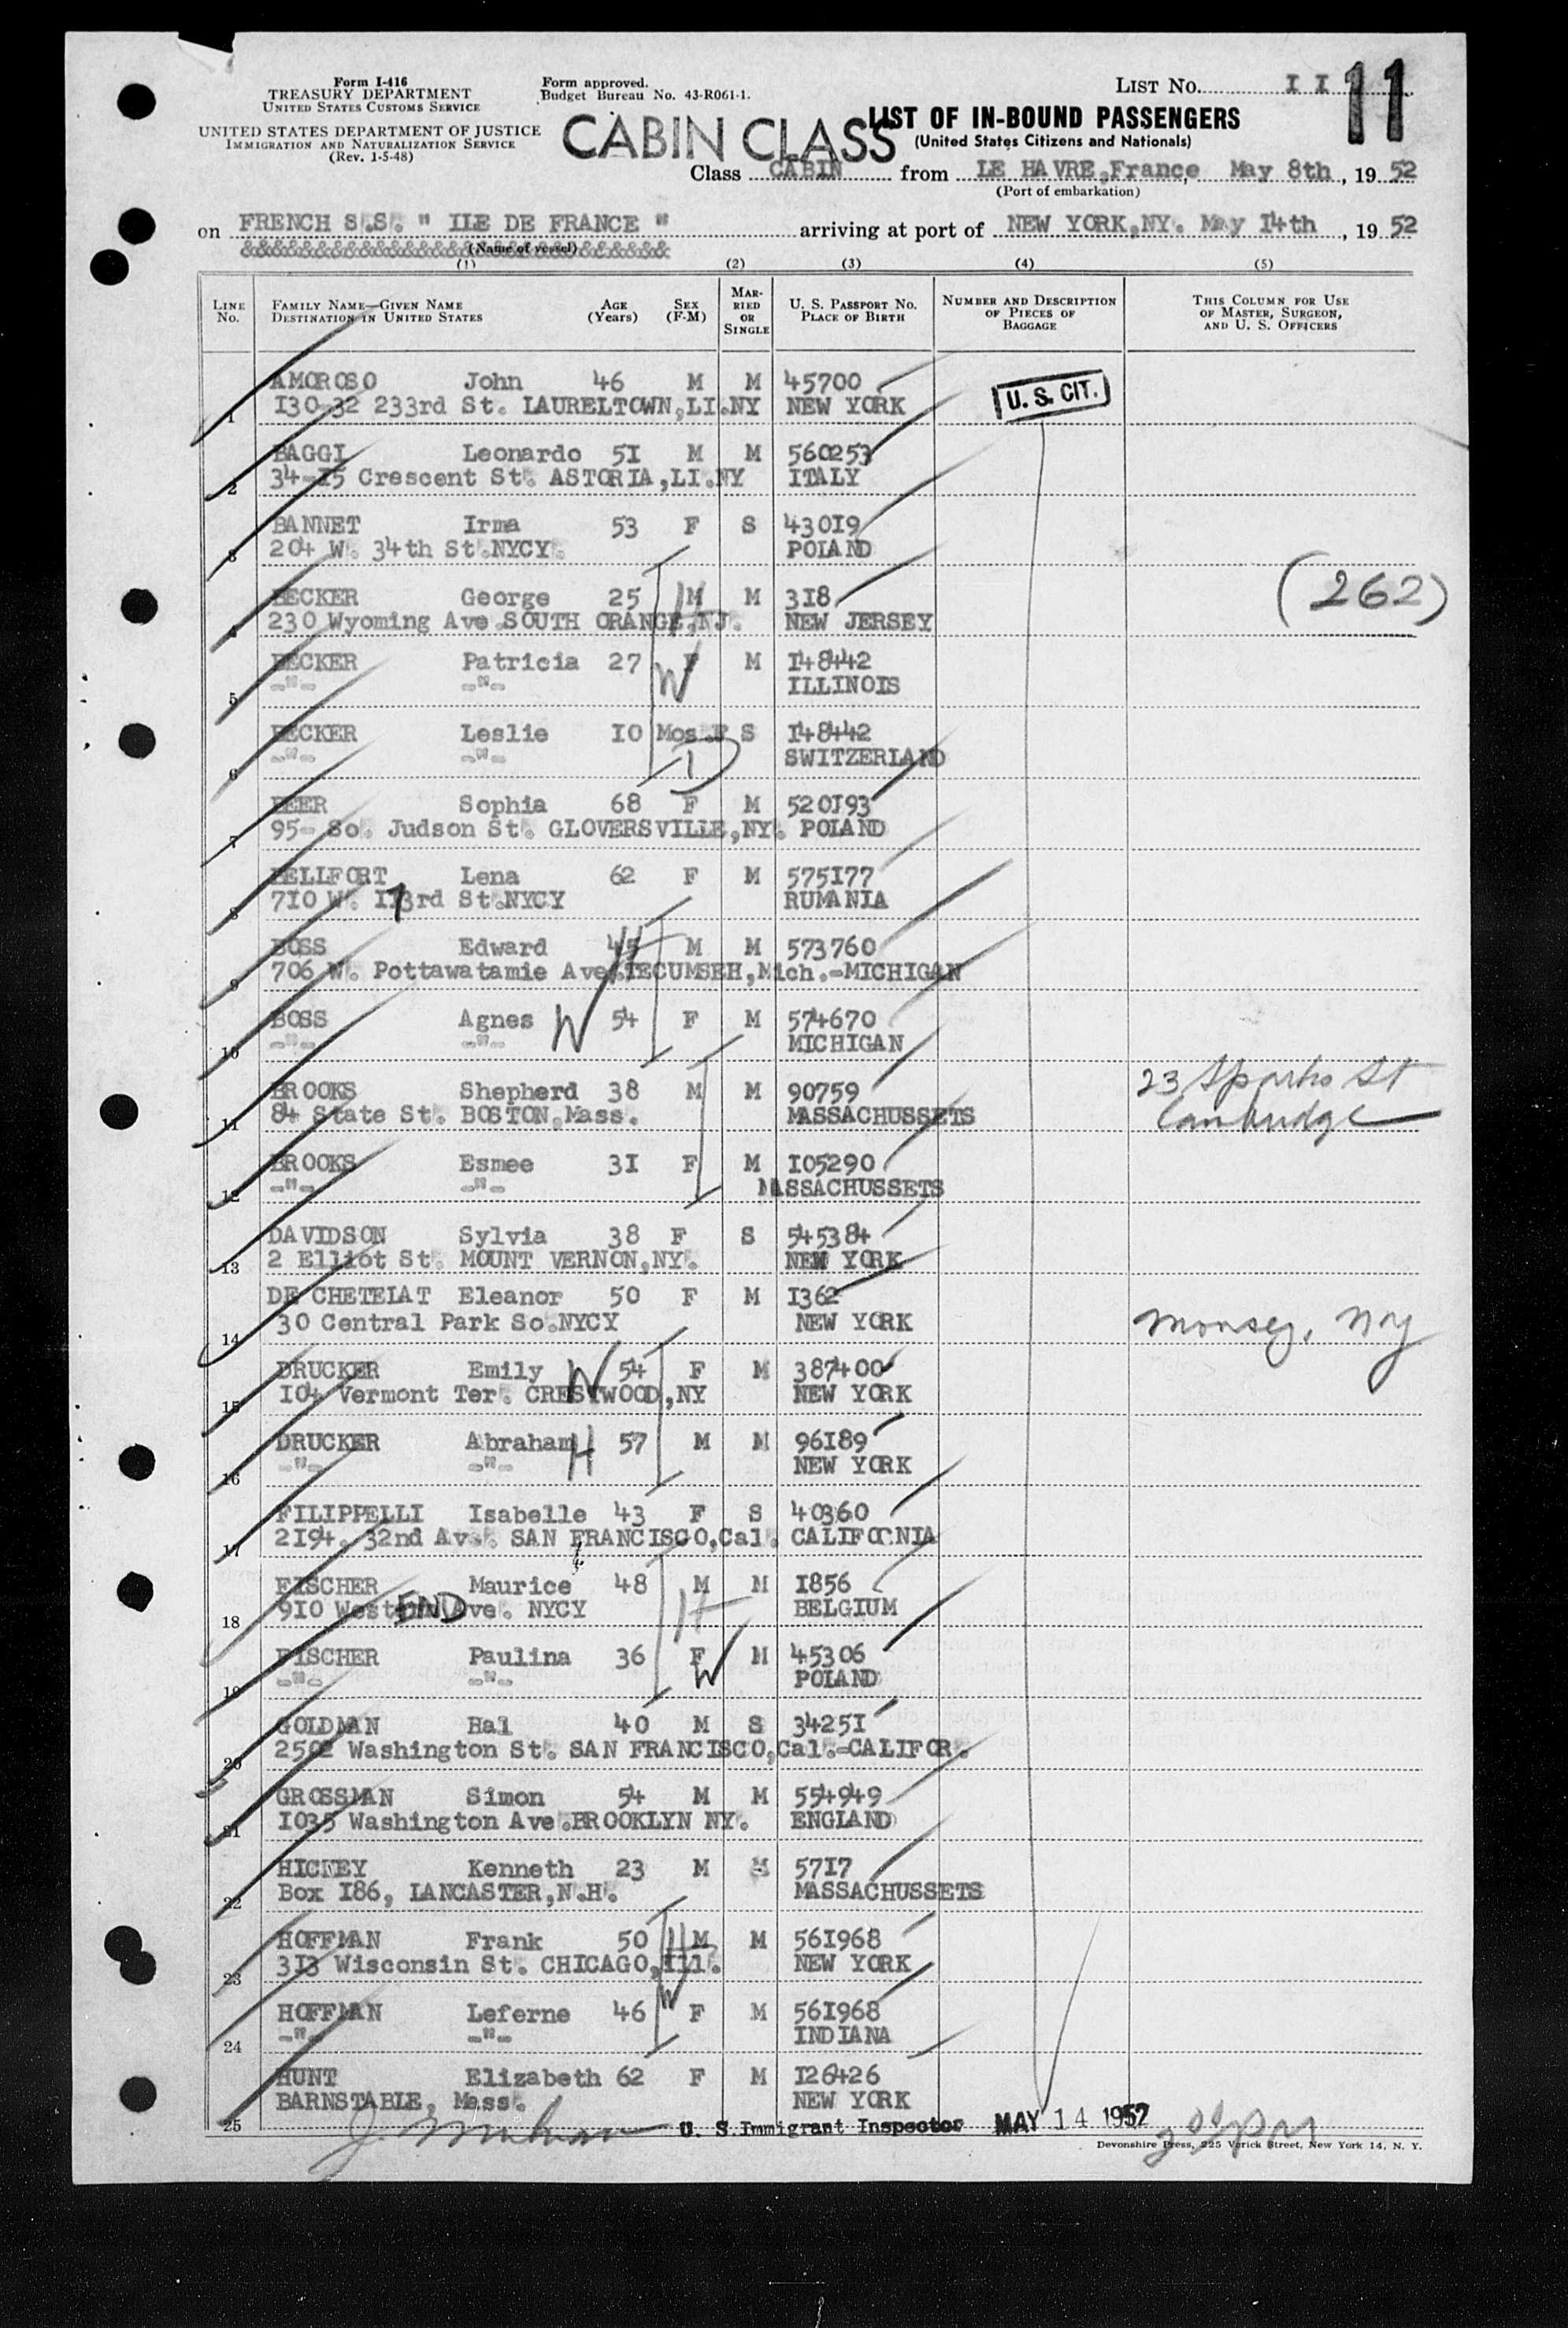 Form I-416
TREASURY DEPARTMENT
UNITED STATES CUSTOMS SERVICE
UNITED STATES DEPARTMENT OF JUSTICE
IMMIGRATION AND NATURALIZATION SERVICE
(Rev. 1-5-48)
Form approved.
Budget Bureau No. 43-R061-1.
LIST NO. II 11
CABIN CLASS
LIST OF IN-BOUND PASSENGERS
(United States Citizens and Nationals)
Class CABIN from LE HAVRE,France, May 8th, 1952
(Port of embarkation)
on FRENCH S.S. " ILE DE FRANCE " arriving at port of NEW YORK,NY. May 14th, 1952
(Name of vessel)
(1) (2) (3) (4) (5)
LINE No. FAMILY NAME—GIVEN NAME DESTINATION IN UNITED STATES AGE (Years) SEX (F-M) MARRIED OR SINGLE U. S. PASSPORT NO. PLACE OF BIRTH NUMBER AND DESCRIPTION OF PIECES OF BAGGAGE THIS COLUMN FOR USE OF MASTER, SURGEON, AND U. S. OFFICERS
AMOROSO John 46 M M 45700 U. S. CIT.
1 130-32 233rd St. LAURELTOWN,LI.NY NEW YORK
BAGGI Leonardo 51 M M 560253
2 34-15 Crescent St. ASTORIA,LI.NY ITALY
BANNET Irma 53 F S 43019
3 204 W. 34th St.NYCY. POLAND
BECKER George 25 M H M 318 (262)
4 230 Wyoming Ave.SOUTH ORANGE,NJ. NEW JERSEY
BECKER Patricia 27 F W M 148442
5 -"- -"- ILLINOIS
BECKER Leslie 10 Mos.F S 148442
6 -"- -"- D SWITZERLAND
BEER Sophia 68 F M 520193
7 95- So. Judson St. GLOVERSVILLE,NY. POLAND
BELLFORT Lena 62 F M 575177
8 710 W. 173rd St.NYCY RUMANIA
BOSS Edward 45 H M M 573760
9 706 W. Pottawatamie Ave.TECUMSEH,Mich.-MICHIGAN
BOSS Agnes W 54 F M 574670
10 -"- -"- MICHIGAN
BROOKS Shepherd 38 M M 90759 23 Sparks St
11 84 State St. BOSTON,Mass. MASSACHUSSETS Cambridge
BROOKS Esmee 31 F M 105290
12 -"- -"- MASSACHUSSETS
DAVIDSON Sylvia 38 F S 545384
13 2 Elliot St. MOUNT VERNON,NY. NEW YORK
DE CHETELAT Eleanor 50 F M 1362
14 30 Central Park So.NYCY NEW YORK Monsey, NY
DRUCKER Emily W 54 F M 387400
15 104 Vermont Ter. CRESTWOOD,NY NEW YORK
DRUCKER Abraham H 57 M M 96189
16 -"- -"- NEW YORK
FILIPPELLI Isabelle 43 F S 40360
17 2194. 32nd Av. SAN FRANCISCO,Cal. CALIFORNIA
FISCHER Maurice 48 M M 1856
18 910 West END Ave. NYCY H BELGIUM
FISCHER Paulina 36 F W M 45306
19 -"- -"- POLAND
GOLDMAN Hal 40 M S 34251
20 2502 Washington St. SAN FRANCISCO,Cal.-CALIFOR.
GROSSMAN Simon 54 M M 554949
21 1035 Washington Ave.BROOKLYN NY. ENGLAND
HICKEY Kenneth 23 M M 5717
22 Box 186, LANCASTER,N.H. MASSACHUSSETS
HOFFMAN Frank 50 H M M 561968
23 313 Wisconsin St. CHICAGO,Ill. NEW YORK
HOFFMAN Leferne 46 W F M 561968
24 -"- -"- INDIANA
HUNT Elizabeth 62 F M 126426
BARNSTABLE, Mass. NEW YORK
25 U. S. Immigrant Inspector MAY 14 1952
Devonshire Press, 225 Varick Street, New York 14, N. Y.